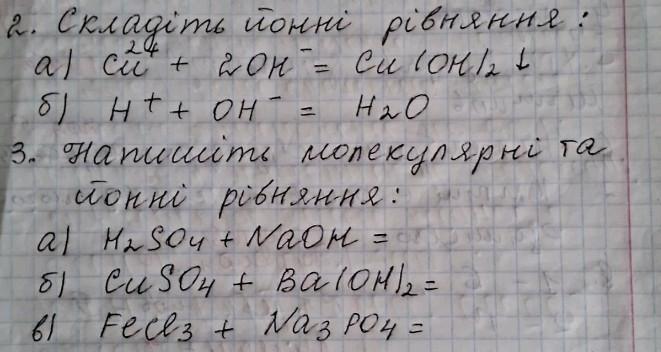 2. Складіть йонні рівняння:
а) Cu²⁺ + 2OH⁻ = Cu(OH)₂ ↓
б) H⁺ + OH⁻ = H₂O
3. Напишіть молекулярні та
йонні рівняння:
а) H₂SO₄ + NaOH =
б) CuSO₄ + Ba(OH)₂ =
в) FeCl₃ + Na₃PO₄ =